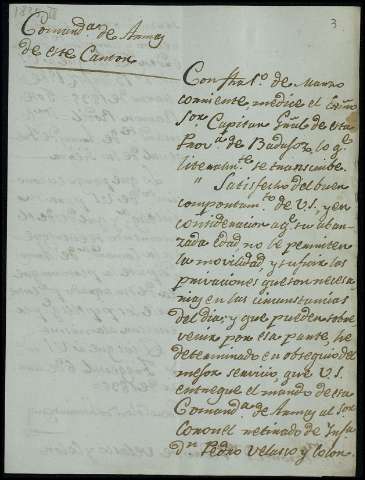 3
Comand.ª de Armas
de este Canton
Con fha 1º. de Marzo
corriente, me dice el Exmo
Sor. Capitan Gral. de esta
Prov.ª de Badajoz lo q.e
literalm.te se transcribe.
" Satisfecho del buen
comportam.to de V.S., y en
consideracion aq.e su aban-
zada edad no le permiten
la movilidad, y sufrir las
privaciones que son necesa-
rias en las circunstancias
del dia; y que pueden sobre
venir por esa parte, he
determinado en obsequio del
mejor servicio, que V.S.
entregue el mando de esa
Comand.ª de Armas al Sor.
Coronel retirado de Infa.
Dn. Pedro Velasco y Colon.